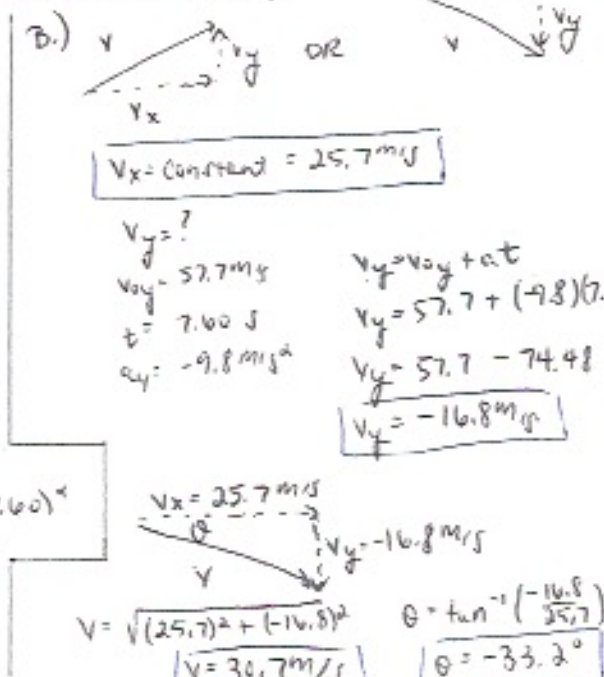 B.) v vy OR v vy
vx
vx = constant = 25.7 m/s
vy = ?
voy = 57.7 m/s
t = 7.60 s
ay = -9.8 m/s²
vy = voy + at
vy = 57.7 + (-9.8)(7.
vy = 57.7 - 74.48
vy = -16.8 m/s
.60)²
vx = 25.7 m/s
θ
vy = -16.8 m/s
v
v = √(25.7)² + (-16.8)²
v = 30.7 m/s
θ = tan⁻¹(-16.8/25.7)
θ = -33.2°